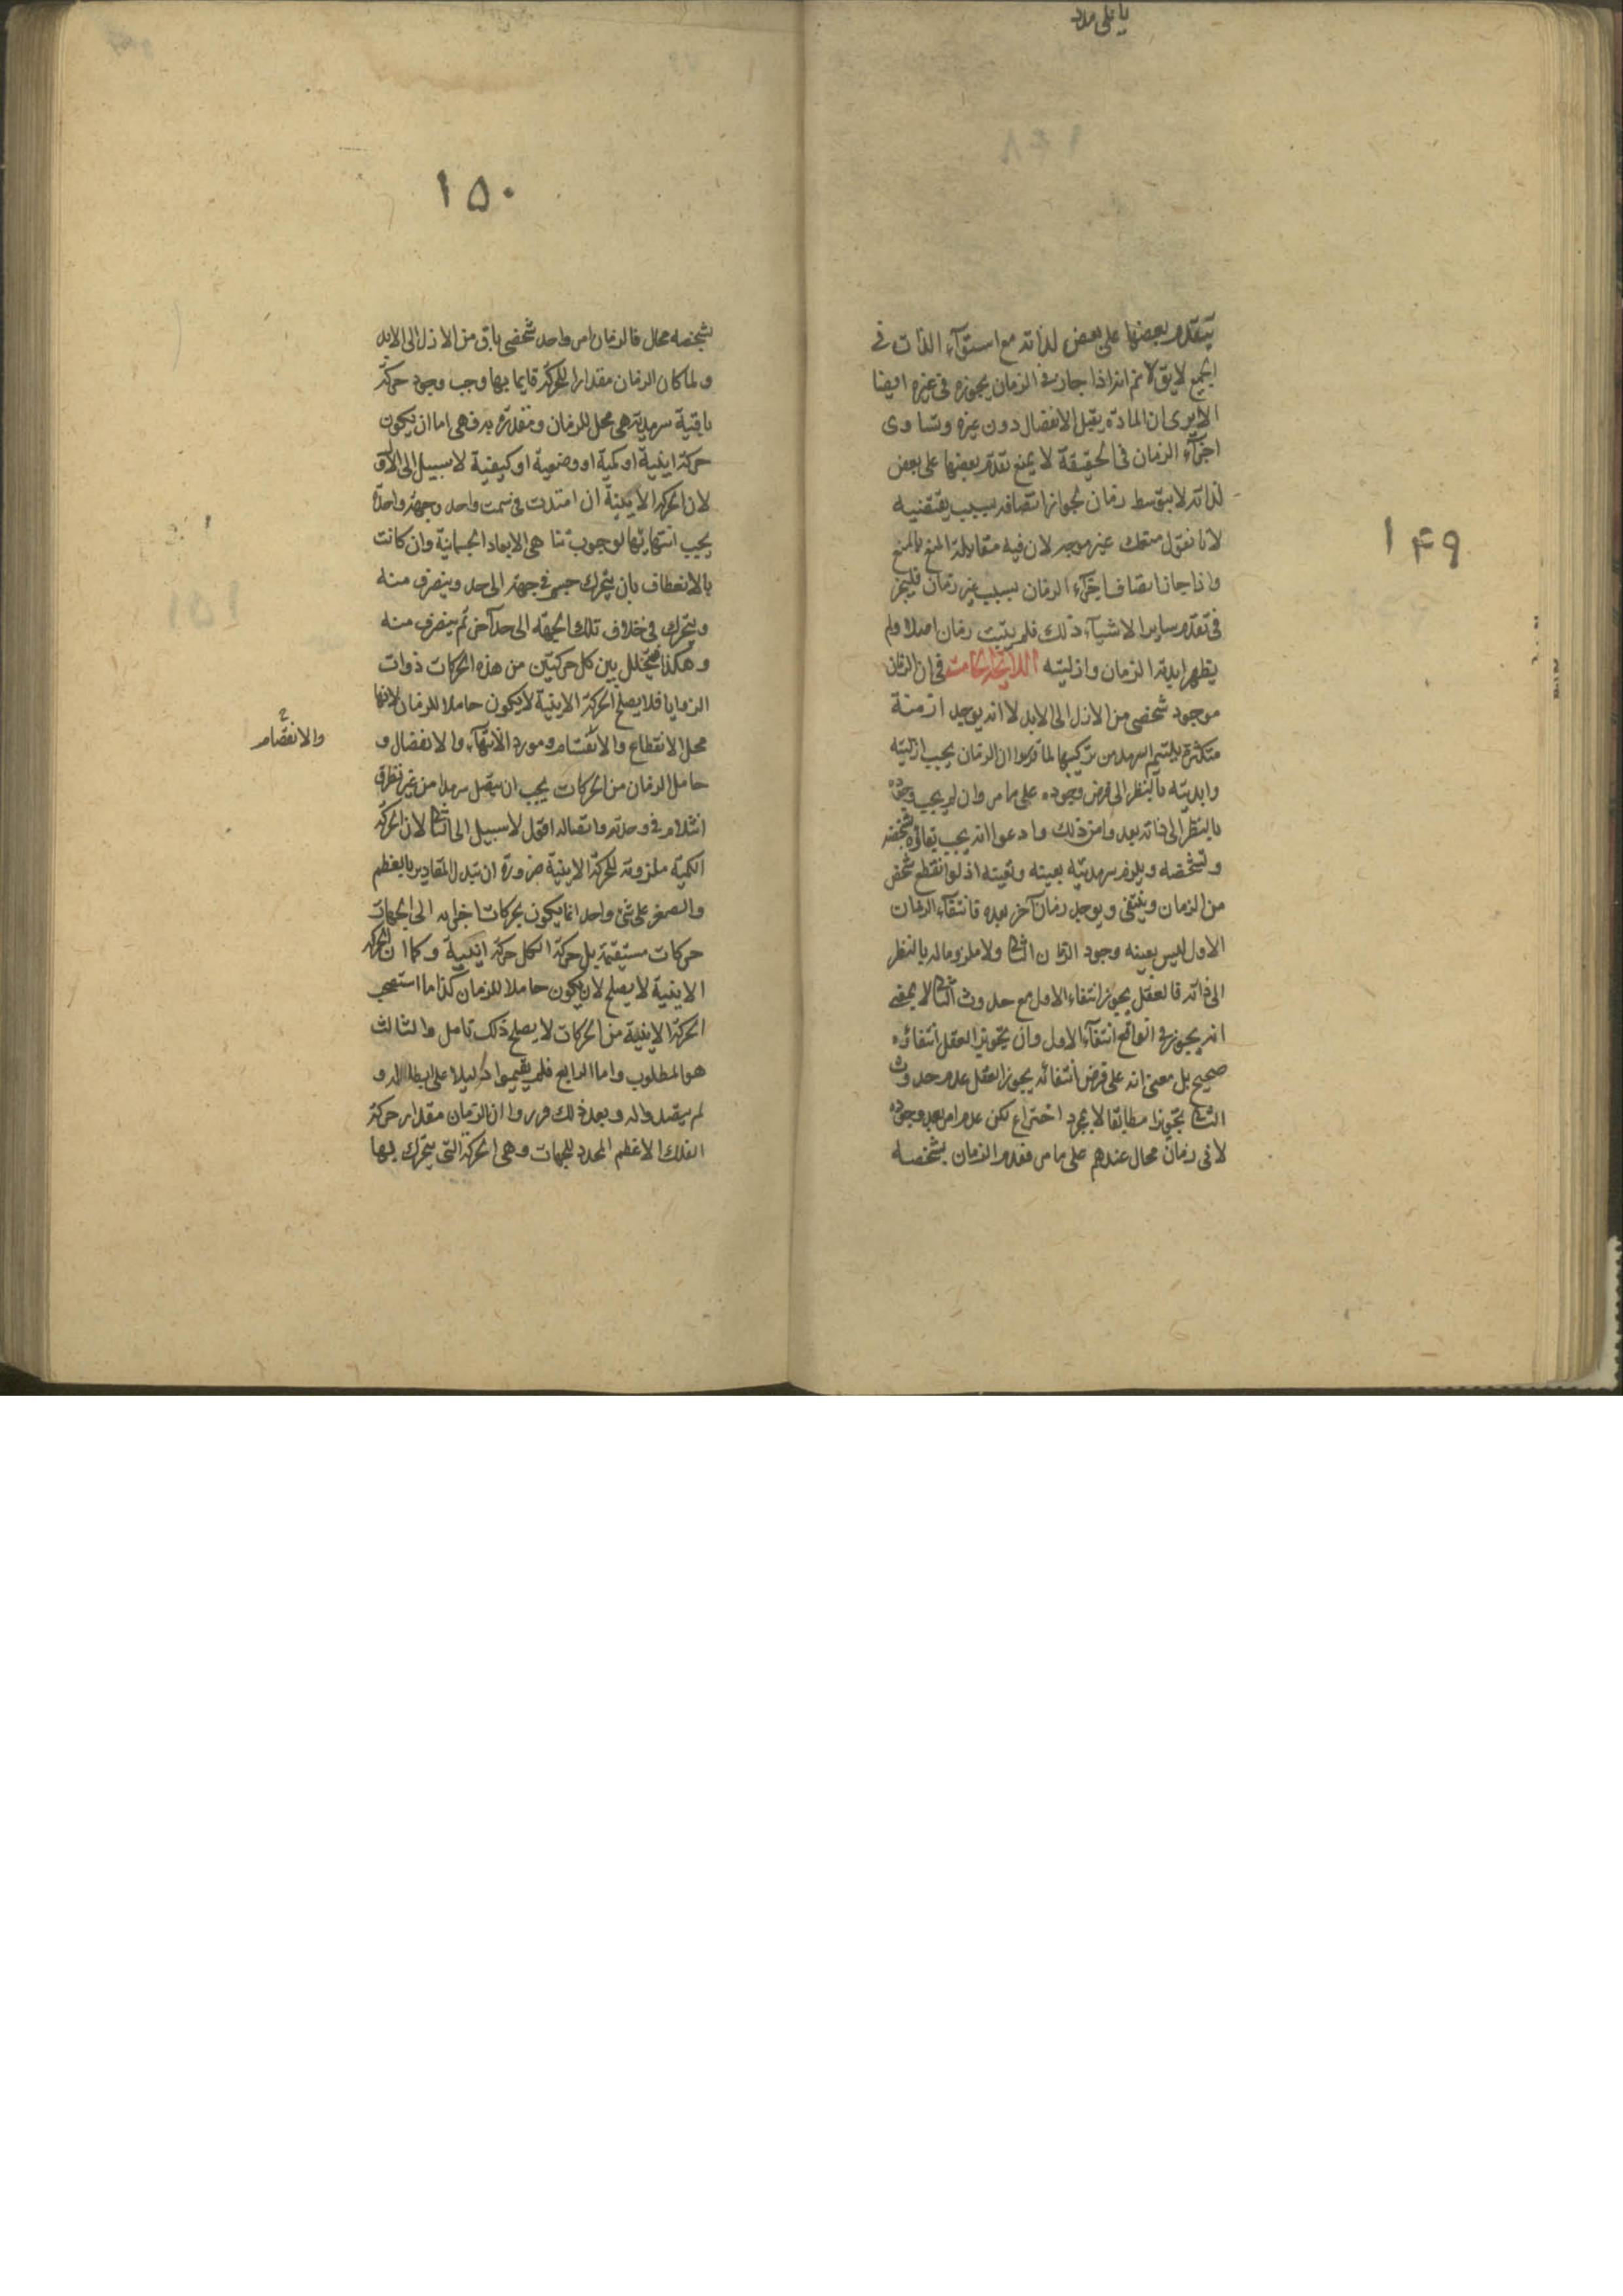 يا على مدد
١٤٩
يتقدم بعضها على بعض لذاته مع استوآء الذات في
الجميع لا يق لا نم انه اذا جاز في الزمان يجوزه في غيره ايضا
الا يرى ان المادة يقبل الانفصال دون غيره وتساوى
اجزآء الزمان في الحقيقة لا يمنع تقدم بعضها على بعض
لذاته لا بتوسط زمان لجواز اتصافه بسبب يقتضيه
لانا نقول منعك غير موجه لان فيه مقابلة المنع بالمنع
واذا جاز اتصاف اجزآء الزمان بسبب غير زمان فليجز
في تقدم ساير الاشيآء ذلك فلم يثبت زمان اصلا ولم
يظهر ابدية الزمان وازليته في ان الزمان
موجود شخصى من الازل الى الابد لا انه يوجد ازمنة
متكثرة يلتئم السرمد من تركيبها لما قرروا ان الزمان يجب ازليته
وابديته بالنظر الى فرض وجوده على ما مر وان لم يجب وجوده
بالنظر الى ذاته بعد وامن ذلك وادعوا انه يجب بقاؤه بشخصه
وتشخصه ويلزم سرمديته بعينه وتعينه اذ لو انقطع شخص
من الزمان وينتفى ويوجد زمان آخر بعده فانتفآء الزمان
الاول ليس بعينه وجود الزمان الثانى ولا ملزوما له بالنظر
الى ذاته فالعقل يجوز انتفاء الاول مع حدوث الثانى لا بمعنى
انه يجوز في الواقع انتفآء الاول وان تجويز العقل انتفائه
صحيح بل معنى انه على فرض انتفائه يجوز العقل عدم حدوث
الثانى تجويزا مطابقا لا بمجرد اختراع لكن عدم امر بعد وجوده
لا في زمان محال عندهم على ما مر فعدم الزمان بشخصه
١٥٠
بشخصه محال فالزمان امر واحد شخصى باق من الازل الى الابد
ولما كان الزمان مقدارا للحركة قايما بها وجب وجود حركة
باقية سرمدية هى محل للزمان ومتقدرة به وهى اما ان يكون
حركة اينية او كمية او وضعية او كيفية لا سبيل الى الاول
لان الحركة الاينية ان امتدت في سمت واحد وجهة واحدة
يجب انتهائها لوجوب تناهى الابعاد الجسمانية وان كانت
بالانعطاف بان يتحرك جسم في جهة الى حد وينصرف منه
ويتحرك في خلاف تلك الجهة الى حد آخر ثم ينصرف منه
وهكذا فيتخلل بين كل حركتين من هذه الحركات ذوات
الزوايا فلا يصلح الحركة الاينية لا يكون حاملا للزمان لانها
محل الانقطاع والانقسام ومورد الانتهآء والانفصال و
والانفصام
حامل الزمان من الحركات يجب ان يتصل سرمدا من غير تطرق
انثلام في وحدته واتصاله لا سبيل الى الثانى لان الحركة
الكمية ملزومة للحركة الاينية ضرورة ان تبدل المقادير بالعظم
والصغر على شئ واحد انما يكون بحركات اجزائه الى الجهات
حركات مستقيمة بل حركة الكل حركة اينية وكما ان الحركة
الاينية لا يصلح لان يكون حاملا للزمان كذا ما استصحب
الحركة الاينية من الحركات لا يصلح ذلك تامل والثالث
هو المطلوب واما الرابع فلم يقيموا دليلا على ابطاله و
لم يتصدوا له وبعد ذلك قرروا ان الزمان مقدار حركة
الفلك الاعظم المحدد للجهات وهى الحركة التى يتحرك بها